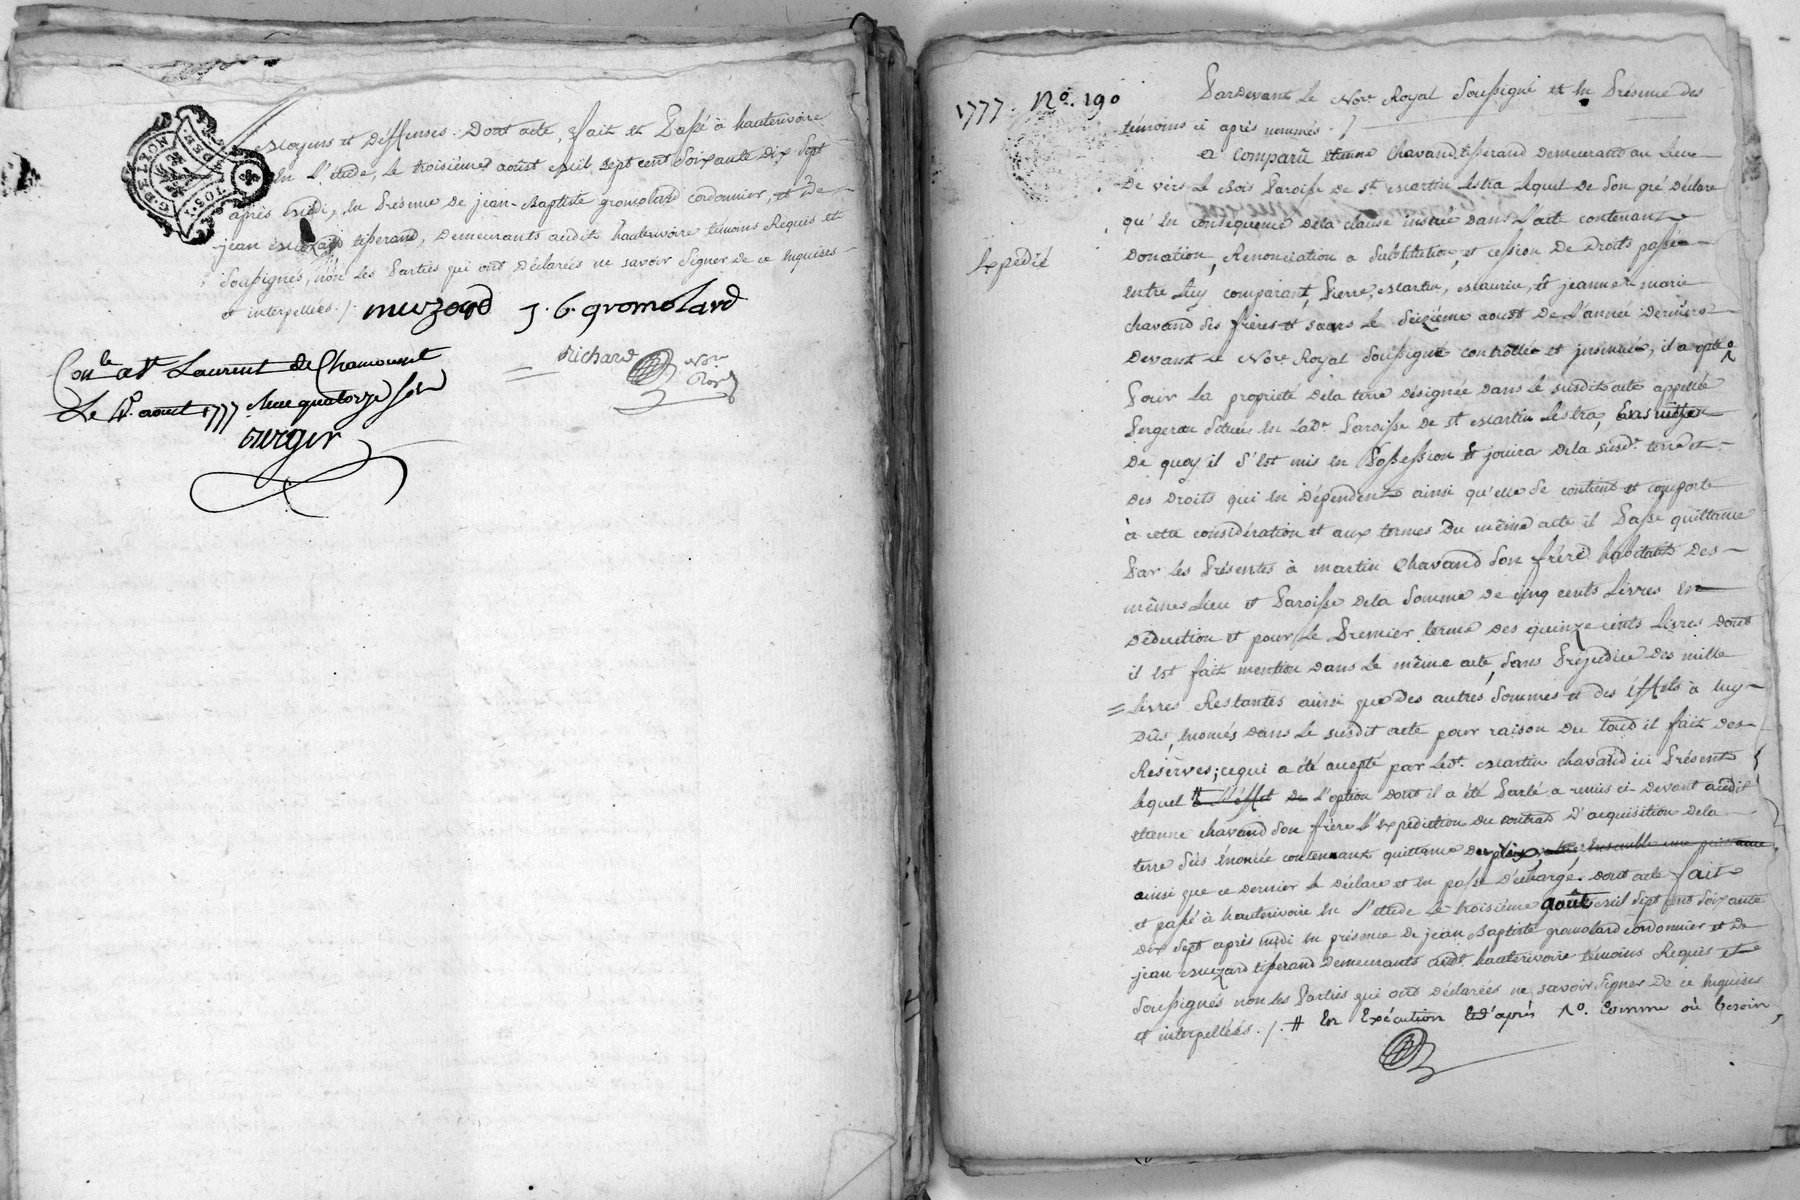 moyens et deffenses. Dont acte, fait et Passé à hauterivoire
En L'étude, Le troisième aoust mil sept cent soixante Dix sept
après midi, en Présence De jean-Baptiste gromolard cordonnier, et De
jean muzard tisserand, Demeurants audit hauterivoire témoins Requis et
soussignés, non Les Parties qui ont Déclarées ne savoir signer De ce Enquises
et interpellées ./.
muzard J. b. gromolard
Richard Nore Royal
Conle a St Laurent de Chamousset
Le 4e aout 1777 Reçu quatorze sols
Turgir
1777. No. 190
Pardevant Le Nore Royal soussigné et En Présence Des
témoins ci après nommés ./
a Comparû Etienne Chavand tisserand Demeurant au Lieu
De vers Le Bois Paroisse De St Martin Lestra Lequel De son gré Déclare
qu'En conséquence De la clause insérée Dans L'acte contenant
Expedié
Donation, Renonciation a substitution, et cession De Droits passée
Entre Luy comparant, Pierre, Martin, Maurice, et jeanne marie
chavand ses frères et sœurs Le seizième aoust De L'année Dernière
Devant Le Nore Royal soussigné controllée et insinuée, il a opté
Pour La propriété De la terre Désignée Dans Le susdit acte appellée
Bergeron située En Lade Paroisse De St Martin Lestra,
De quoy il s'Est mis en Possession et jouira De la susde terre et
Des Droits qui En Dépendent ainsi qu'elle se contient et comporte
à cette considération et aux termes Du même acte il Passe quittance
Par Les Présentes à martin Chavand son frère habitant Des
mêmes Lieu et Paroisse De la somme De cinq cents Livres En
Déduction et pour Le Premier terme Des quinze cents Livres Dont
il Est fait mention Dans Le même acte, sans Préjudice Des mille
Livres Restantes ainsi que Des autres sommes et Des Effets à Luy
Dûs, Enoncés Dans Le susdit acte pour raison Du tout il fait Des
Réserves; ce qui a été accepté par Ledt Martin chavand ici Présent
Lequel # à L'Effet de L'option Dont il a été Parlé a remis ci-Devant audit
Etienne chavand son frère L'Expédition Du contrat D'acquisition De la
terre sus Enoncée contenant quittance Du prix, Ensemble une
ainsi que ce Dernier Le Déclare et En passe Décharge. Dont acte fait
et passé à hauterivoire En L'étude Le troisième août mil sept cent soixante
Dix sept après midi En présence De jean Baptiste gromolard cordonnier et De
jean muzard tisserand Demeurants audt hauterivoire témoins Requis et
soussignés non Les Parties qui ont Déclarées ne savoir signer De ce Enquises
et interpellées ./. # En Exécution et d'après No. comme où besoin